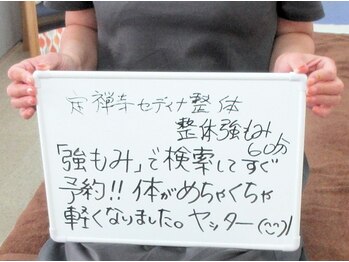 定禅寺セディナ整体
整体強もみ
60分
「強もみ」で検索してすぐ
予約!! 体がめちゃくちゃ
軽くなりました。ヤッター(^^)/